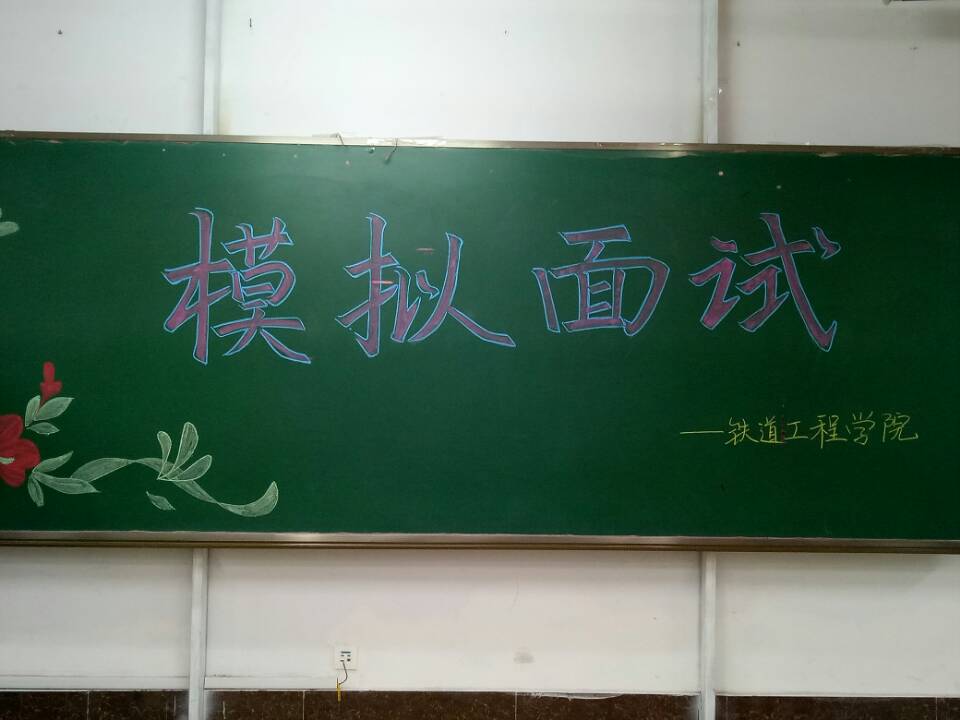 模拟面试
—铁道工程学院